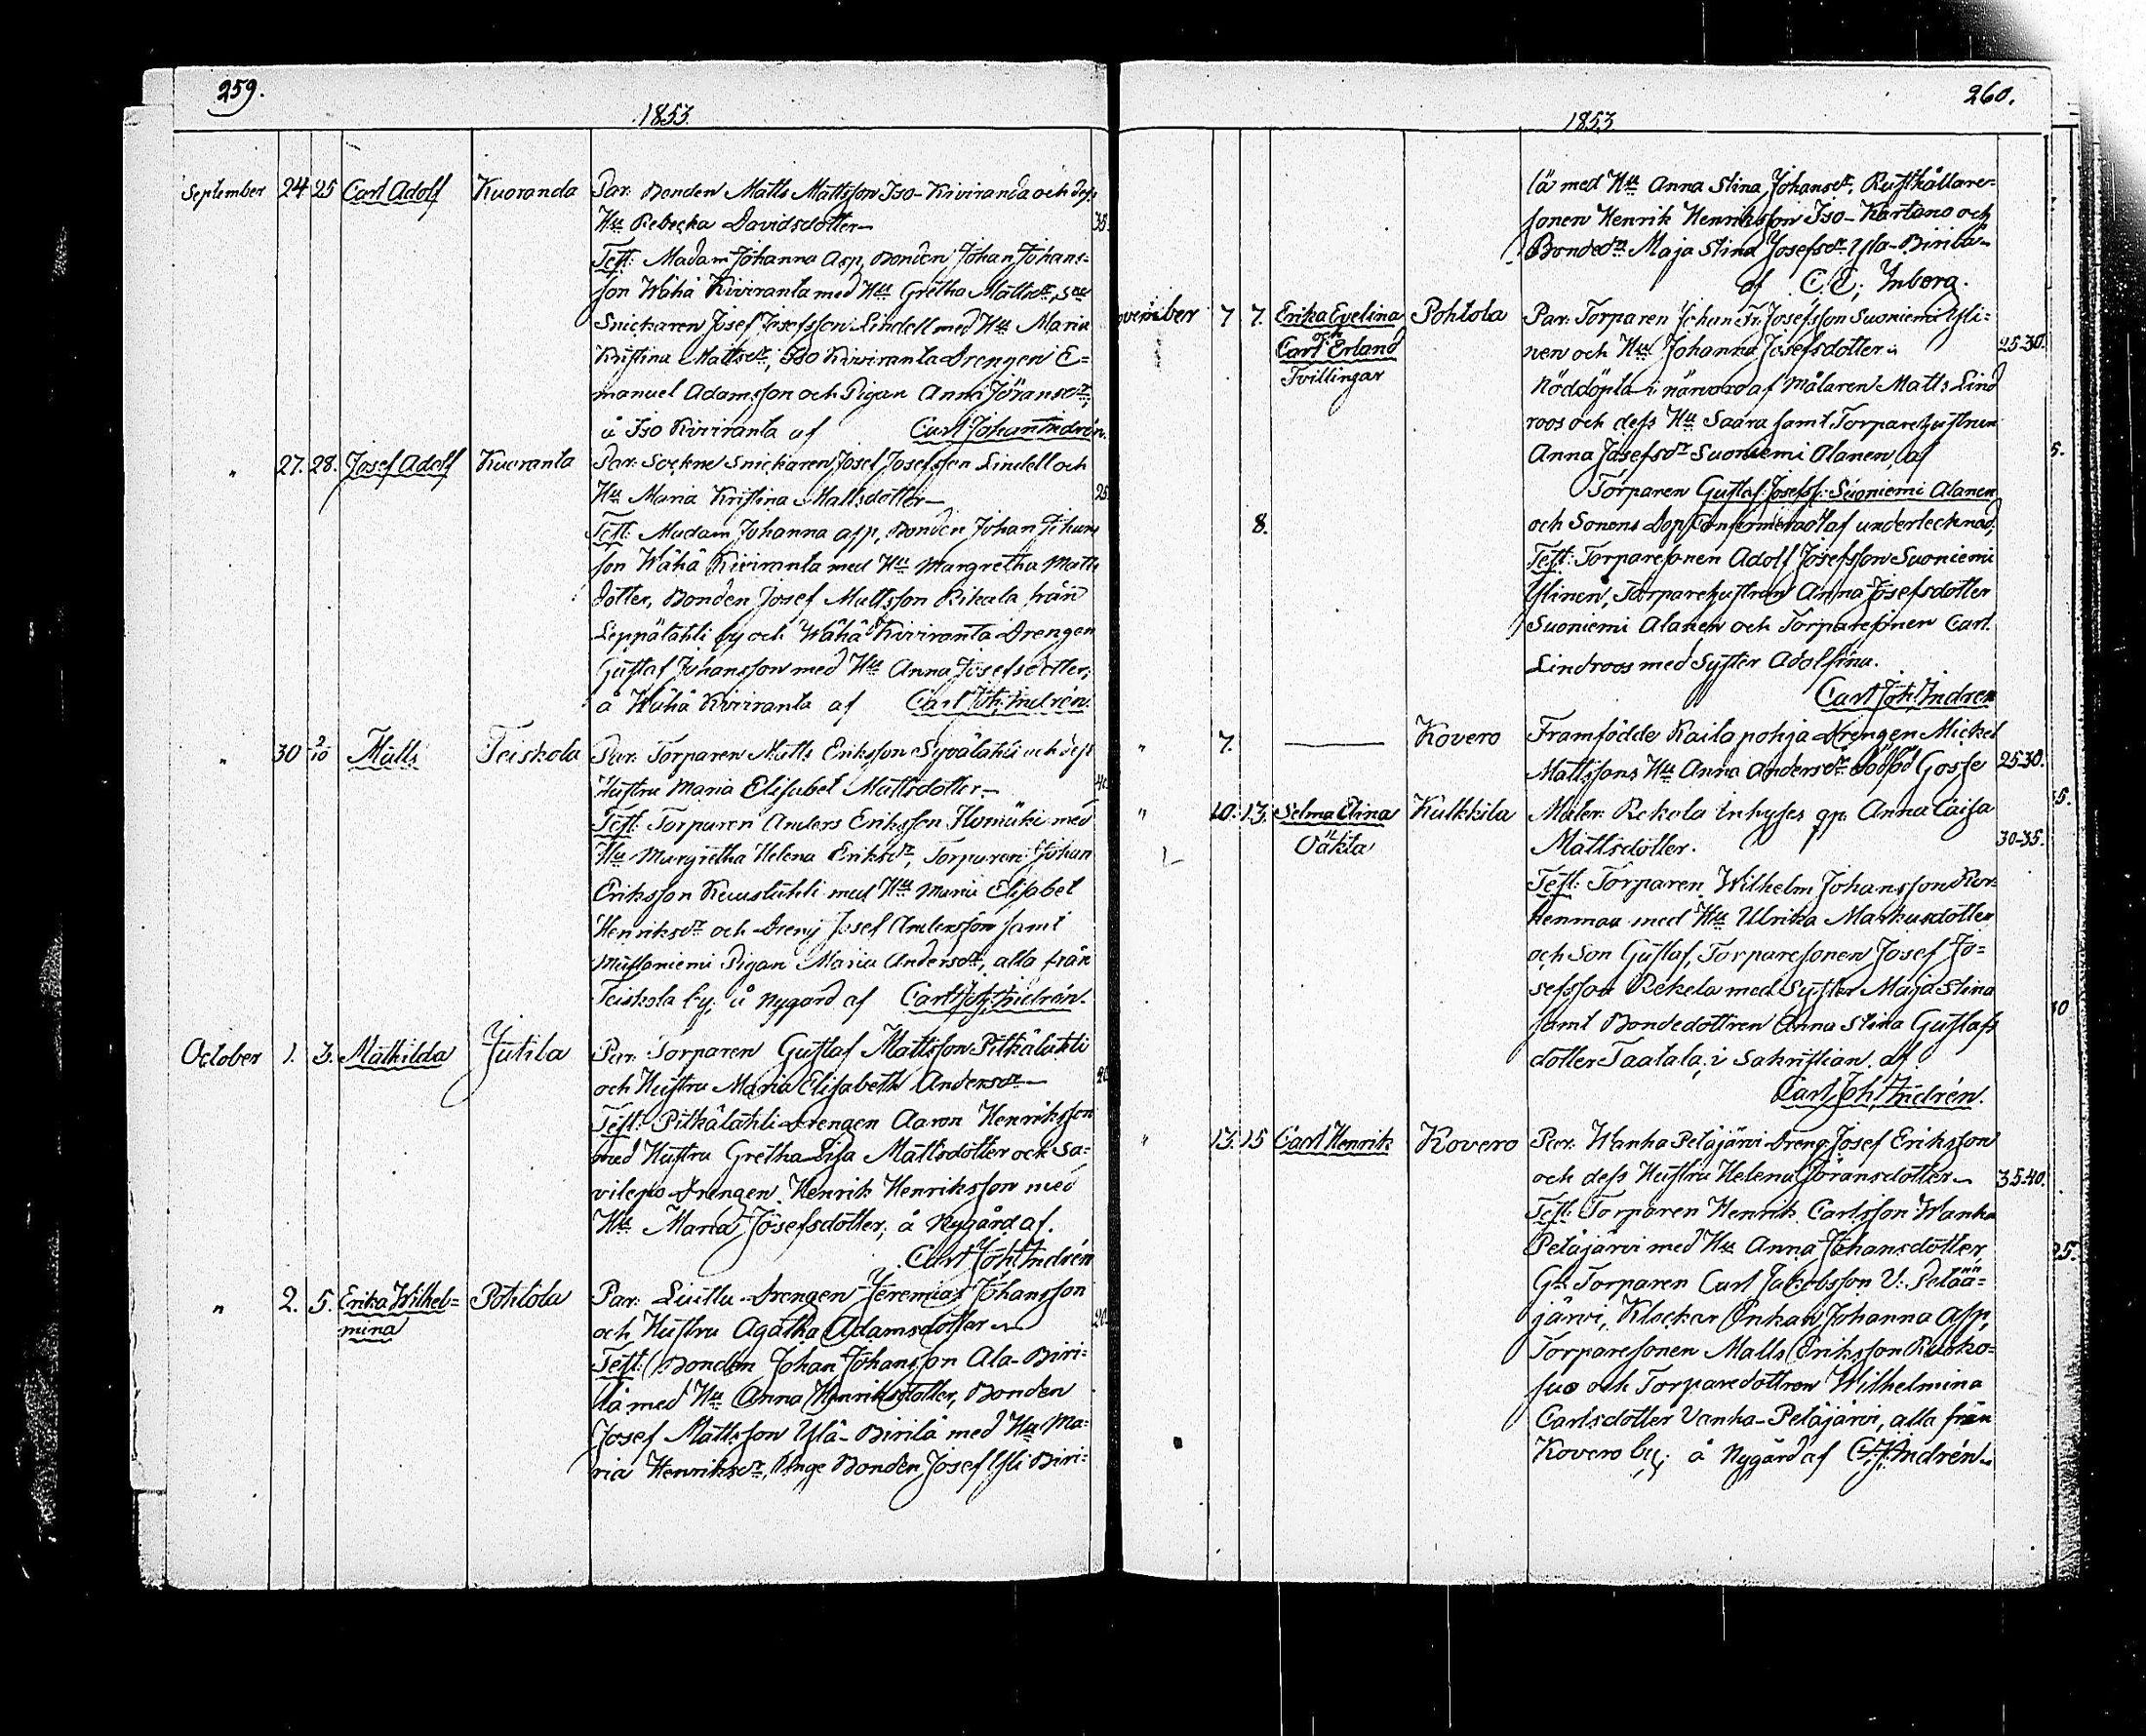 259.
1853.
September 24 25 Carl Adolf Kuoranda Par: Bonden Matts Mattsson Iso-Kiviranda och dess
Hu Rebecka Davidsdotter 35.
Test: Madam Johanna Asp, Bonden Johan Johans=
son Wähä Kiviranta med Hu Gretha Mattsdr,
Snickaren Josef Josefsson Lindell med Hu Maria
Kristina Mattsdr, Iso Kiviranta Drengen E=
manuel Adamsson och Pigan Anna Jöransdr,
å Iso Kiviranta af Carl Johan Indrén.
" 27. 28. Josef Adolf Kuoranta Par: Sockne Snickaren Josef Josefsson Lindell och
Hu Maria Kristina Mattsdotter 25.
Test: Madam Johanna Asp, Bonden Johan Johans
son Wähä Kiviranta med Hu Margretha Matts
dotter, Bonden Josef Mattsson Rikala från
Leppälahti by och Wähä Kiviranta Drengen
Gustaf Johansson med Hu Anna Josefsdotter,
å Wähä Kiviranta af Carl Joh: Indrén.
" 30 2/10 Matts Teiskola Par: Torparen Matts Eriksson Syvälahti och dess
Hustru Maria Elisabet Mattsdotter 40.
Test: Torparen Anders Eriksson med
Hu Margretha Helena Eriksdr, Torparen Johan
Eriksson med Hu Maria Elisabet
Henriksdr och Dreng Josef Andersson samt
Mustaniemi Pigan Maria Andersdr, alla från
Teiskola by, å Nygård af Carl Joh: Indrén.
October 1. 3. Mathilda Jutila Par: Torparen Gustaf Mattsson Pitkälahti
och Hustru Maria Elisabeth Andersdr 20
Test: Pitkälahti Drengen Aaron Henriksson
med Hustru Gretha Lisa Mattsdotter och Sa=
vilepo Drengen Henrik Henriksson med
Hu Maria Josefsdotter, å Nygård af.
Carl Joh: Indrén
" 2. 5. Erika Wilhel= Pohtola Par: Luttu Drengen Jeremias Johansson
mina och Hustru Agatha Adamsdotter 20.
Test: Bonden Johan Johansson Ala-Biri=
lä med Hu Anna Henriksdotter, Bonden
Josef Mattsson Ylä-Birilä med Hu Ma=
ria Henriksdr, Unge Bonden Josef Yli Biri=
260.
1853
lä med Hu Anna Stina Johansdr, Rusthållare=
sonen Henrik Henriksson Iso-Kartano och
Bondedr Maja Stina Josefsdr Yla-Birilä
af C. E. Inberg.
vember 7 7. Erika Evelina Pohtola Par: Torparen Johan Fr: Josefsson Suoniemi Yli=
och nen och Hu Johanna Josefsdotter 25-30.
Carl Erland
Tvillingar Nöddöpta i närvaro af Målaren Matts Lind
roos och dess Hu Saara samt Torparehustrun
Anna Josefsdr Suoniemi Alanen, af
Torparen Gustaf Josefss: Suoniemi Alanen
8. och Sonens Dop Confirmerad af undertecknad,
Test: Torparesonen Adolf Josefsson Suoniemi
Ylinen, Torparehustrun Anna Josefsdotter
Suoniemi Alanen och Torparesonen Carl
Lindroos med Syster Adolfina.
Carl Joh: Indren
" 7. — Kovero Framfödde Railo pohja Drengen Mickel
Mattssons Hu Anna Andersdr dödfödd Gosse 25-30.
" 10. 13. Selma Elina Kulkkila Moder: Rekola Inhyses qp. Anna Caisa
Oäkta Mattsdotter. 30-35.
Test: Torparen Wilhelm Johansson Kor=
henmaa med Hu Ulrika Markusdotter
och Son Gustaf, Torparesonen Josef Jo=
sefsson Rekola med Syster Maja Stina
samt Bondedottren Anna Stina Gustafs
dotter Taatala; i Sakristian af
Carl Joh: Indrén.
" 13. 15 Carl Henrik Kovero Par: Wanha Petäjärvi Dreng Josef Eriksson
och dess Hustru Helena Jöransdotter 35-40.
Test: Torparen Henrik Carlsson Wanha
Petäjärvi med Hu Anna Johansdotter,
Gla Torparen Carl Jakobsson V: Petää=
järvi, Klockar Enkan Johanna Asp,
Torparesonen Matts Eriksson Rusko=
suo och Torparedottren Wilhelmina
Carlsdotter Vanha-Petäjärvi, alla från
Kovero by; å Nygård af C: J: Indrén